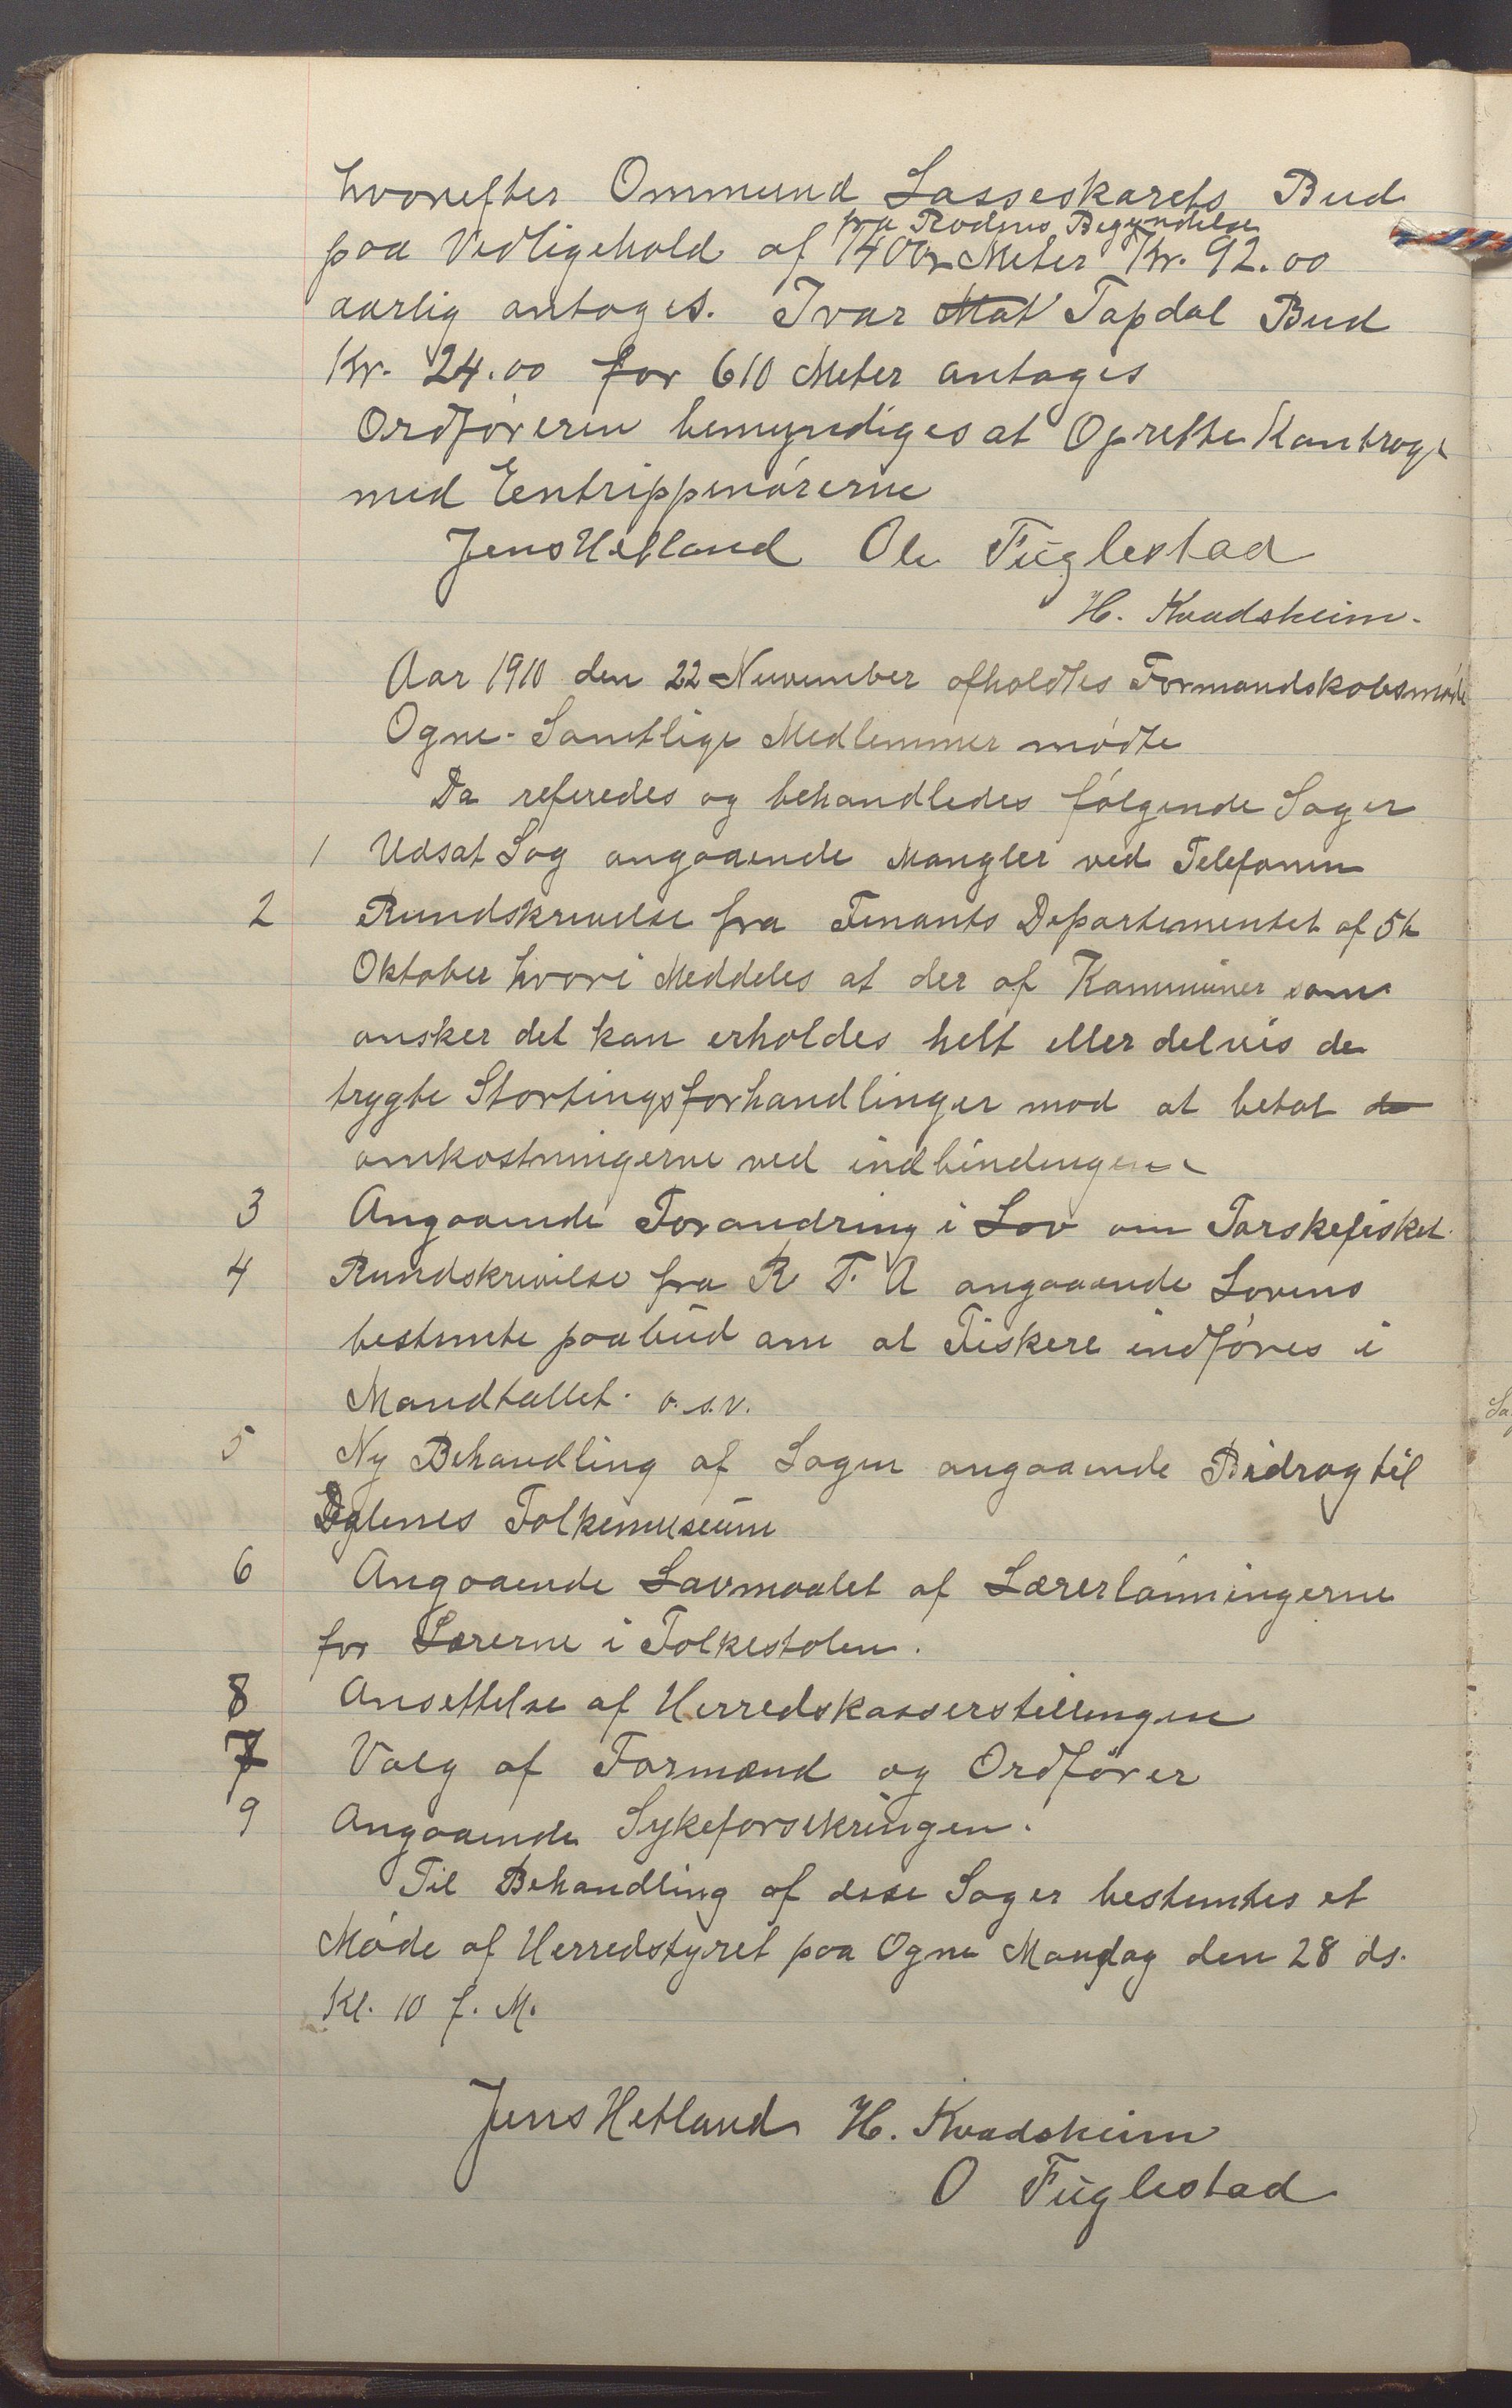 hvorefter Ommund Lasseskarets Bud
fra Rodens Begyndelse
paa Vedligehold af 1400 Meter Kr. 92.00
aarlig antoges. Ivar Mat Tapdal Bud
Kr. 24.00 for 610 Meter antoges
Ordføreren bemyndiges at Oprette Kontragt
med Eentrippenørerne
Jens Hetland Ole Fuglestad
H. Kvadsheim.
Aar 1910 den 22 November afholdtes Formandskabsmøde
Ogne. Samtlige Medlemmer mødte
Da referedes og behandledes følgende Sager
1 Udsat Sag angaaende Mangler ved Telefonen
2 Rundskrivelse fra Finants Departementet af 5te
Oktober hvori Meddeles at der af Kommuner som
ønsker det kan erholdes helt eller delvis de
trygte Stortingsforhandlinger mod at betale de
omkostningerne ved indbindingen
3 Angaaende Forandring i Lov om Torskefisket.
4 Rundskrivelse fra R. F. A angaaende Lovens
bestemte paabud om at Fiskere indføres i
Mandtallet. o.s.v.
5 Ny Behandling af Sagen angaaende Bidrag til
Dalenes Folkemuseum
6 Angaaende Lavmaalet af Lærerlønningerne
for Lærerne i Folkeskolen.
8 Ansettelse af Herredskasserstillingen
7 Valg af Formænd og Ordfører
9 Angaaende Sykeforsekringen.
Til Behandling af disse Sager bestemtes et
Møde af Herredstyret paa Ogne Mandag den 28 ds.
Kl. 10 f. M.
Jens Hetland H. Kvadsheim
O Fuglestad